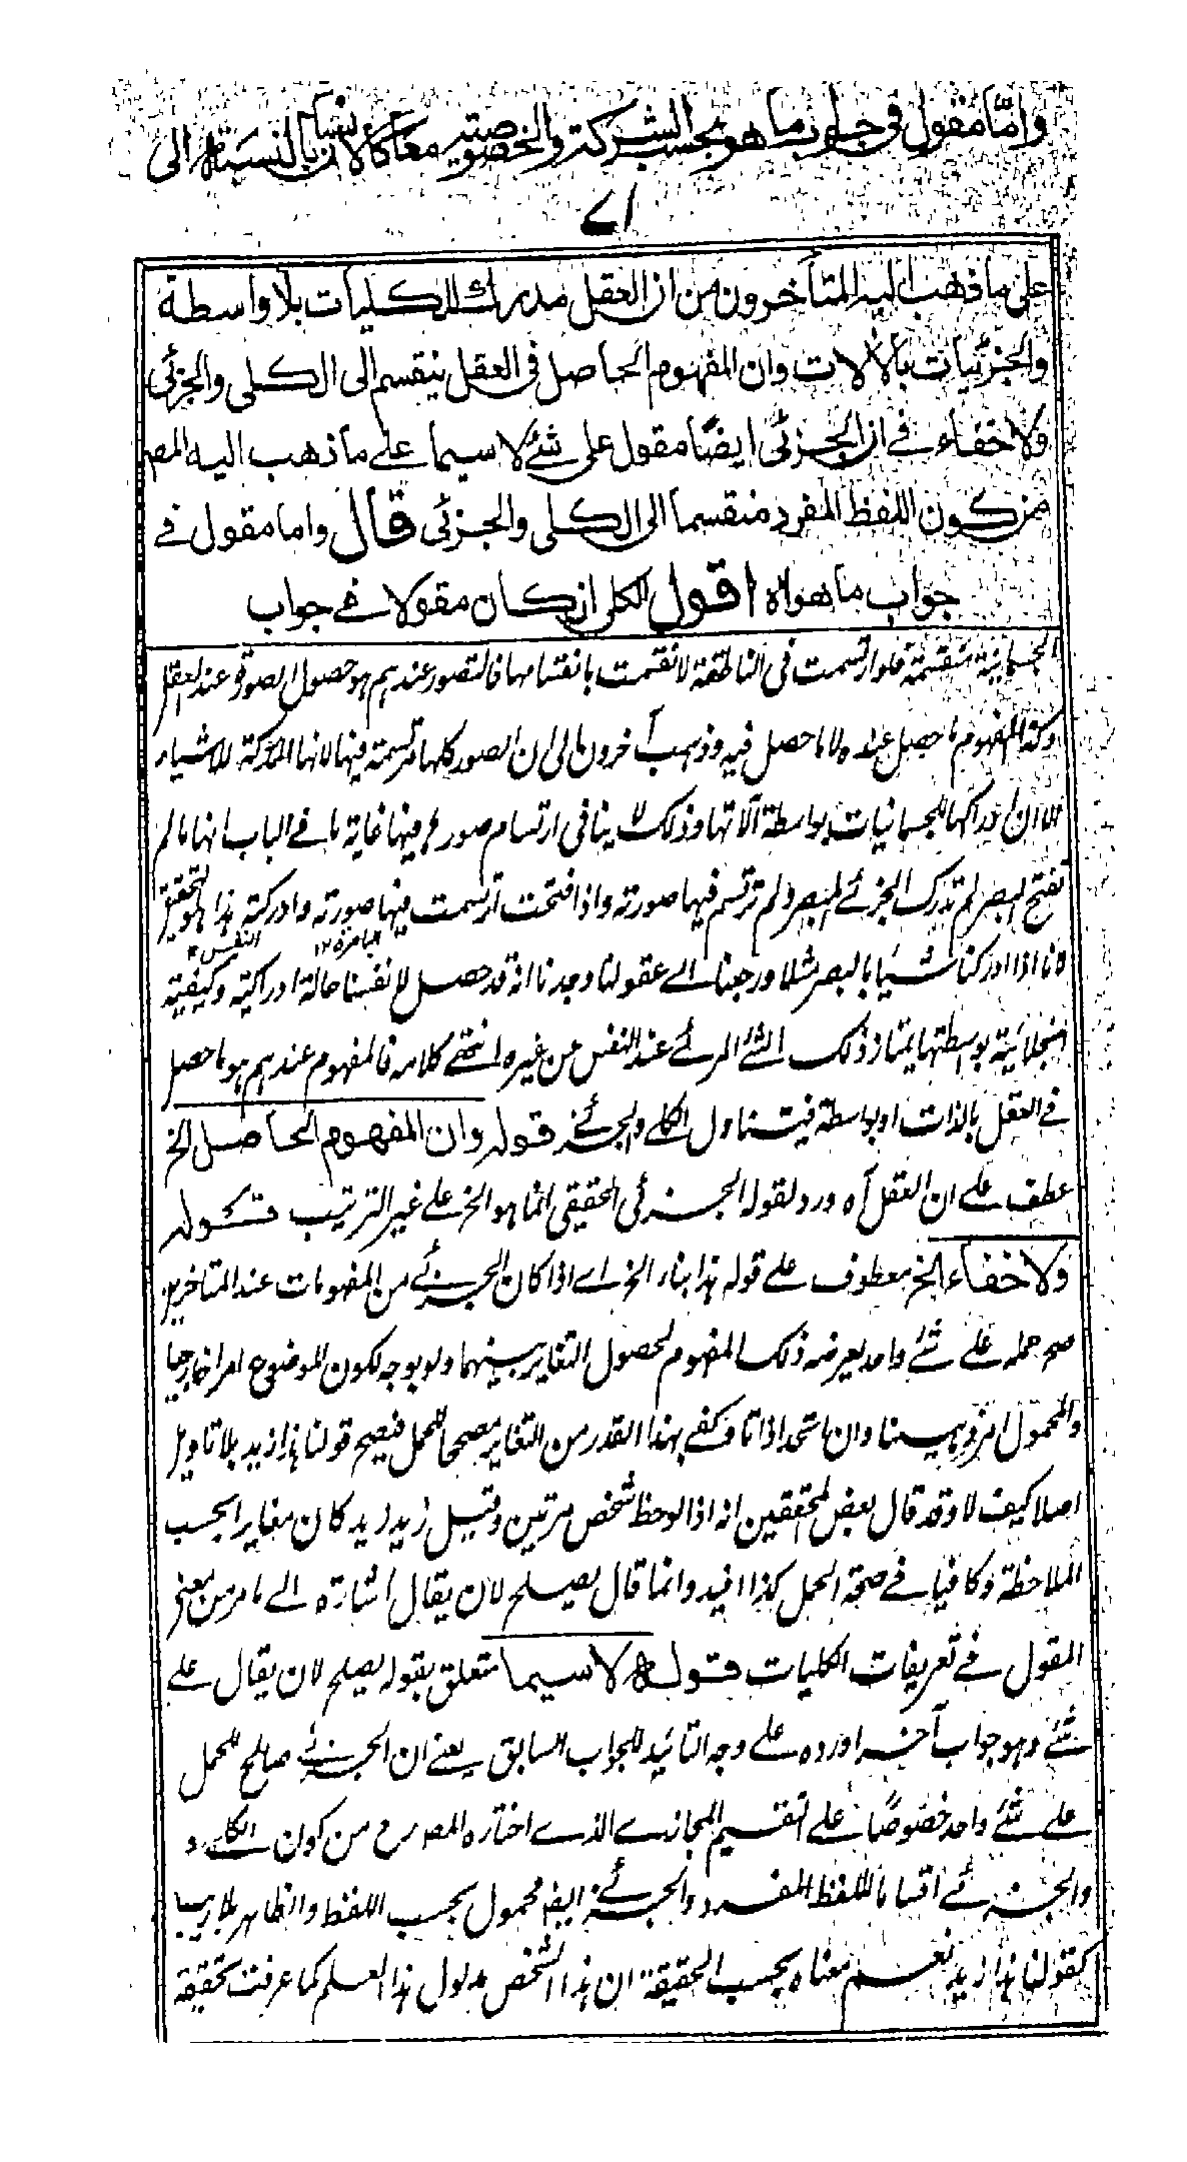 واما مقول فى جواب ما هو بحسب الشركة والخصوصية معا كالانسان بالنسبة الى
٧١
على ما ذهب اليه المتأخرون من ان العقل مدرك للكليات بلا واسطة
والجزئيات بالآلات وان المفهوم الحاصل فى العقل ينقسم الى الكلى والجزئى
ولا خفاء فے ان الجزئى ايضًا مقول على شئ لا سيما علے ما ذهب اليه المص
من كون اللفظ المفرد منقسما الى الكلى والجزئى قال واما مقول فے
جواب ما هو اه اقول الكلى ان كان مقولا فے جواب
الجسمانية منقسمة فلو ارتسمت فى الناطقة لانقسمت بانقسامها فالتصور عندهم هو حصول الصورة عند العقل
وكذا المفهوم ما حصل عنده لا ما حصل فيه وذهب آخرون الى ان الصور كلها مرتسمة فيها لانها المدركة للاشياء
الا ان ادراكها للجسمانيات بواسطة آلاتها وذلك لا ينافى ارتسام صورها فيها غاية ما فے الباب انها ما لم
تفتح البصر لم تدرك الجزئے المبصر ولم ترتسم فيها صورته واذا فتحت ارتسمت فيها صورته وادركته هذا هو التحقيق
لانا اذا ادركنا شيئا بالبصر مثلا ورجعنا الے عقولنا وجدنا انه قد حصل لانفسنا حالة ادراكية وكيفية
انجلائية بواسطتها يمتاز ذلك الشئ المرئے عند النفس عن غيره انتهے كلامه فالمفهوم عندهم هو ما حصل
فے العقل بالذات او بواسطة فيتناول الكلے والجزئے قوله وان المفهوم الحاصل الخ
عطف علے ان العقل آه ورد لقوله الجزئى الحقيقى انما هو الخ علے غير الترتيب قوله
ولا خفاء الخ معطوف علے قوله هذا بناء الخ اے اذا كان الجزئے من المفهومات عند المتاخرين
صح حمله علے شئے واحد يعرضه ذلك المفهوم لحصول التغاير بينهما ولو بوجه لكون الموضوع امرا خارجيا
والمحمول امرا ذهنيا وان اتحدا ذاتا وكفے بهذا القدر من التغاير مصححا للحمل فيصح قولنا هذا زيد بلا تاويل
اصلا كيف لا وقد قال بعض المحققين انه اذا لوحظ شخص مرتين وقيل زيد زيد كان مغايرا بحسب
الملاحظة وكافيا فے صحة الحمل كذا افيد وانما قال يصلح لان يقال اشارة الے ما مر من معنى
المقول فے تعريفات الكليات قوله لا سيما متعلق بقوله يصلح لان يقال علے
شئے وهو جواب آخر اورده علے وجه التائيد للجواب السابق يعنے ان الجزئے صالح للحمل
علے شئے واحد خصوصًا علے التقسيم المجازے الذے اختاره المصرح من كون الكلے
والجزئے اقساما للفظ المفرد والجزئے ايضا محمول بحسب اللفظ والظاهر بلا ريب
كقولنا هذا زيد نعم معناه بحسب الحقيقة ان هذا الشخص مدلول هذا العلم كما عرفت تحقيقه